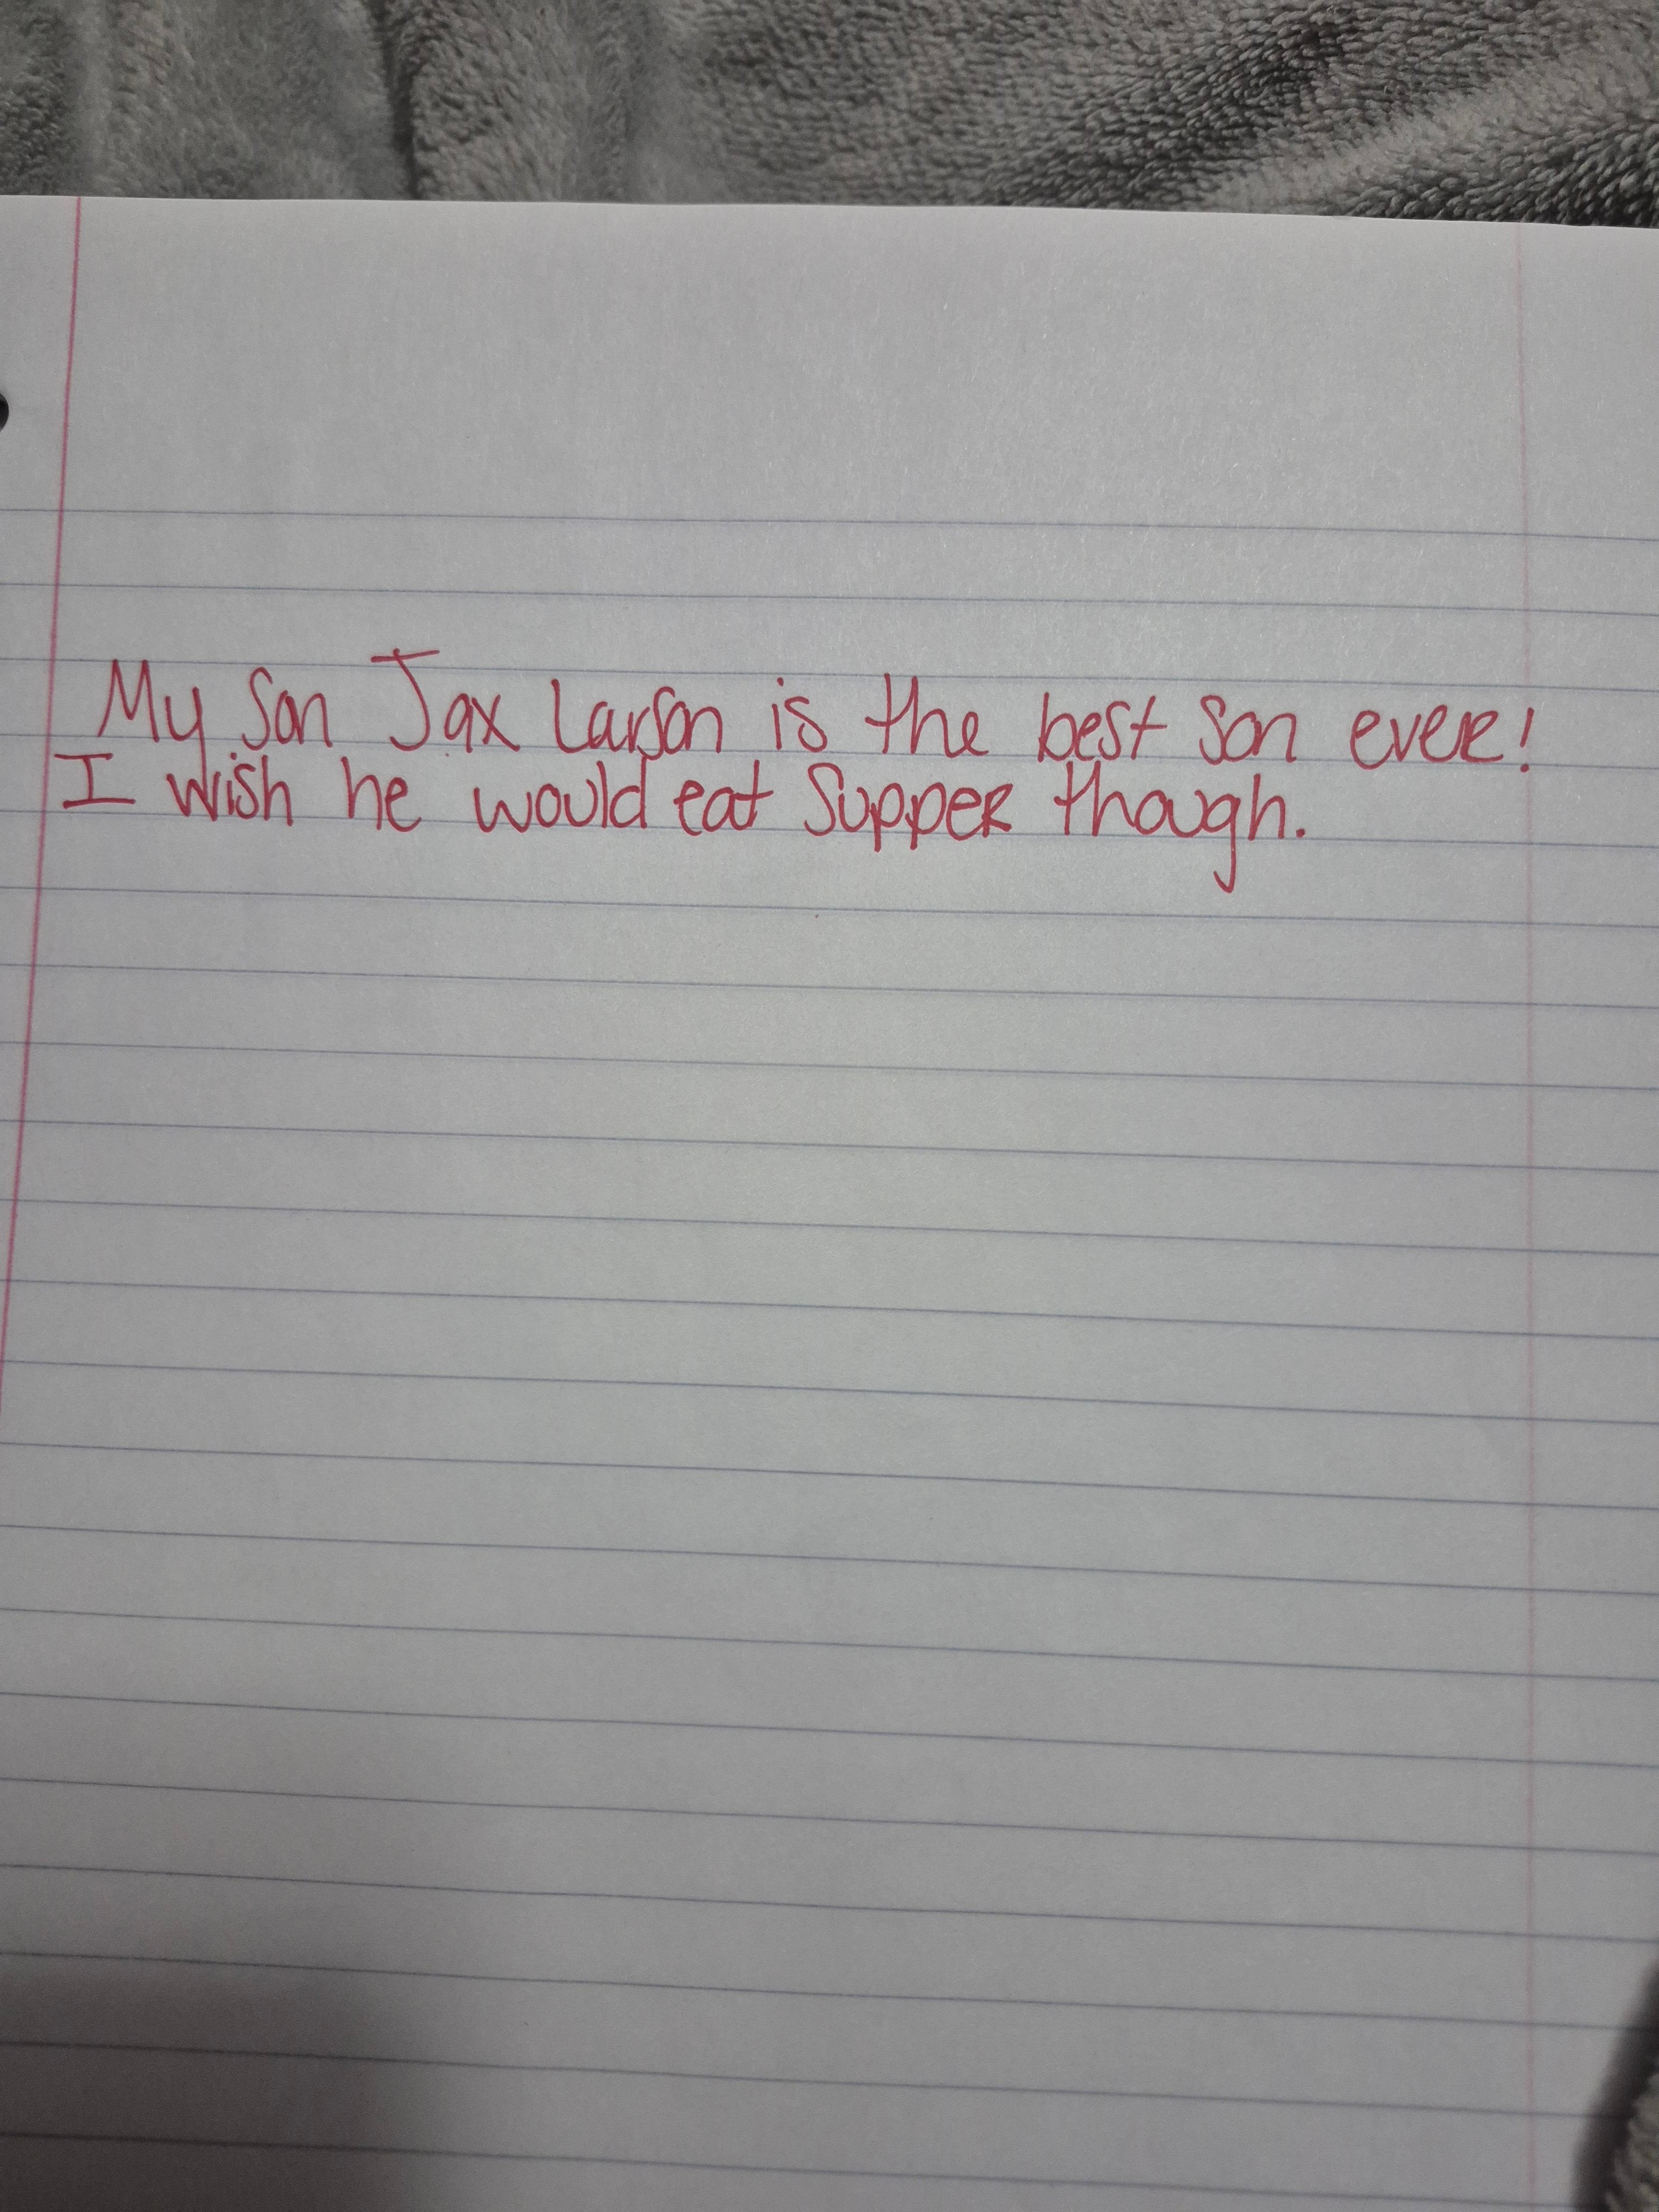 My son Jax Larson is the best son ever!
I wish he would eat supper though.